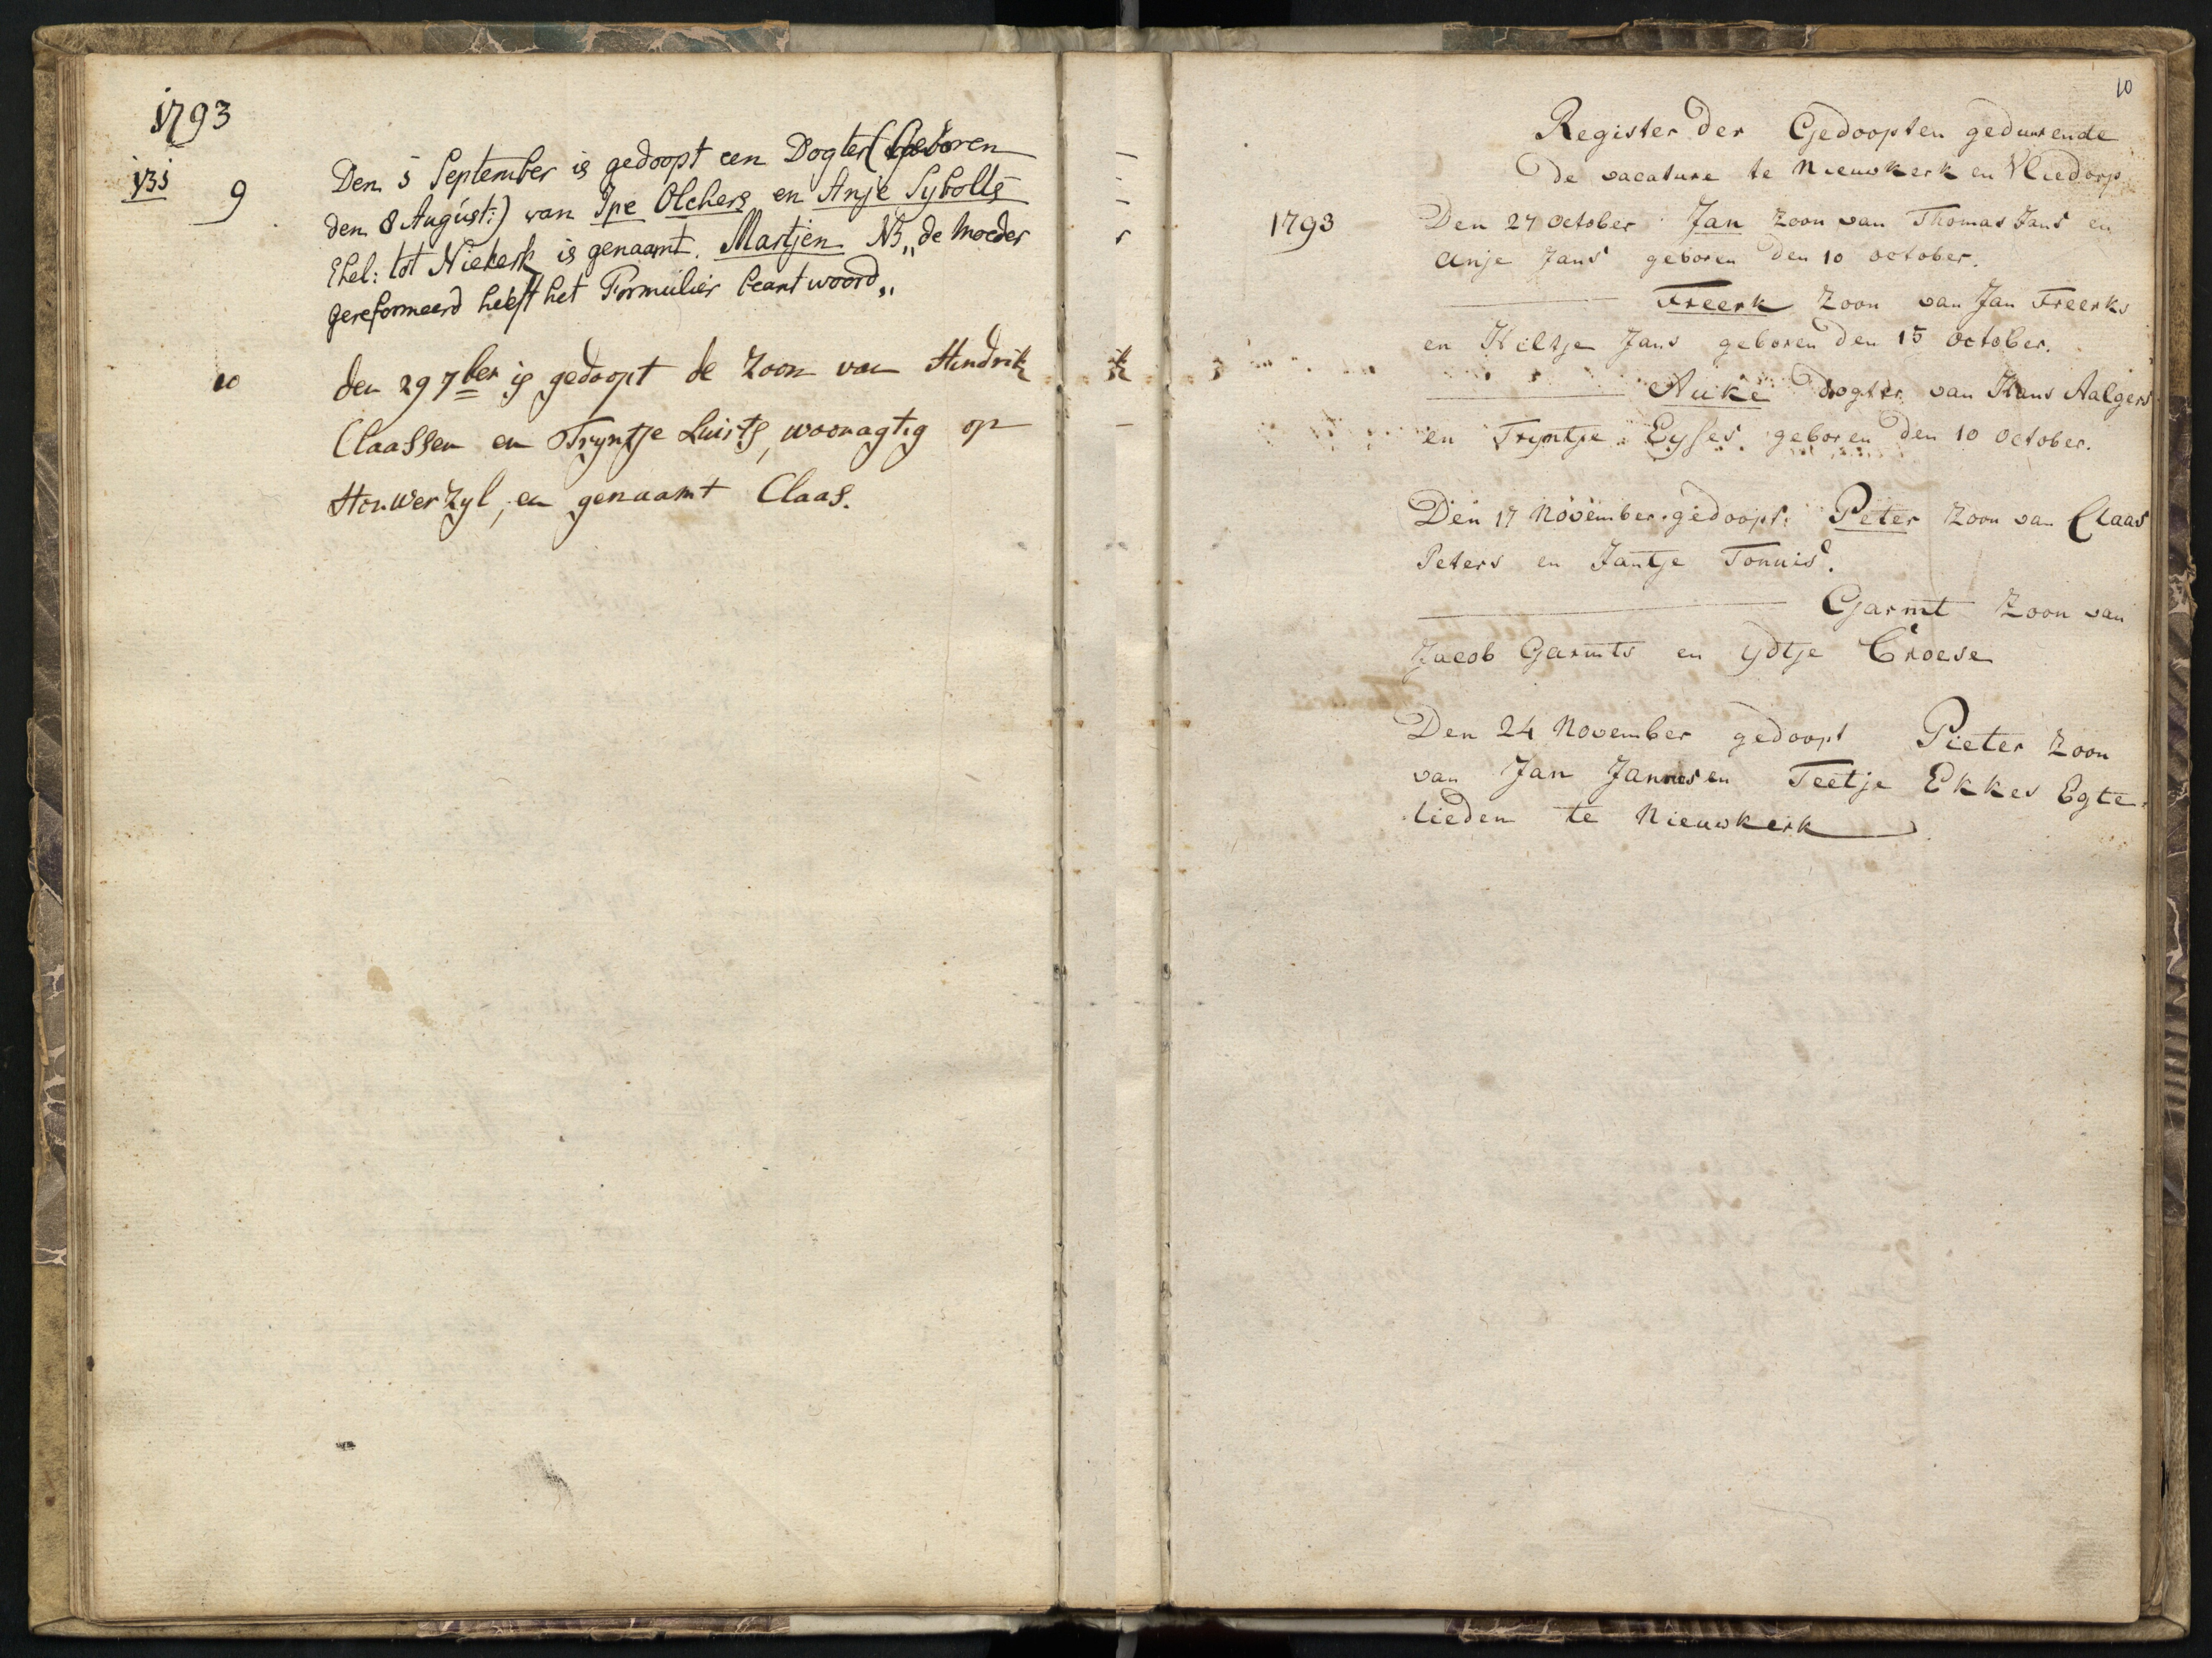 1793
135
9
Den 5 September is gedoopt een Dogter (Geboren
den 8 August:) van Ipe Olchers en Anje Sybolts
Ehel: tot Niekerk is genaamt. Martjen NB „de Moeder
gereformeerd heeft het Formulier beantwoord„
10
den 29 7ber is gedoopt de Zoon van Hindrik
Claassen en Tryntje Luirts, woonagtig op
Houwerzyl, en genaamt Claas.
10
Register der Gedoopten gedurende
de vacature te Nieuwkerk en Vliedorp
1793
Den 27 October Jan Zoon van Thomas Jans en
Anje Jans geboren den 10 october.
Freerk Zoon van Jan Freerks
en Hiltje Jans geboren den 15 October.
Auke dogter van Hans Aalgers
en Trijntje Eysses geboren den 10 October.
Den 17 November gedoopt: Peter Zoon van Claas
Peters en Jantje Tonnis.
Garmt Zoon van
Jacob Garmts en Ydtje Croese
Den 24 November gedoopt Pieter Zoon
van Jan Jannes en Teetje Ekkes Egte-
lieden te Nieuwkerk